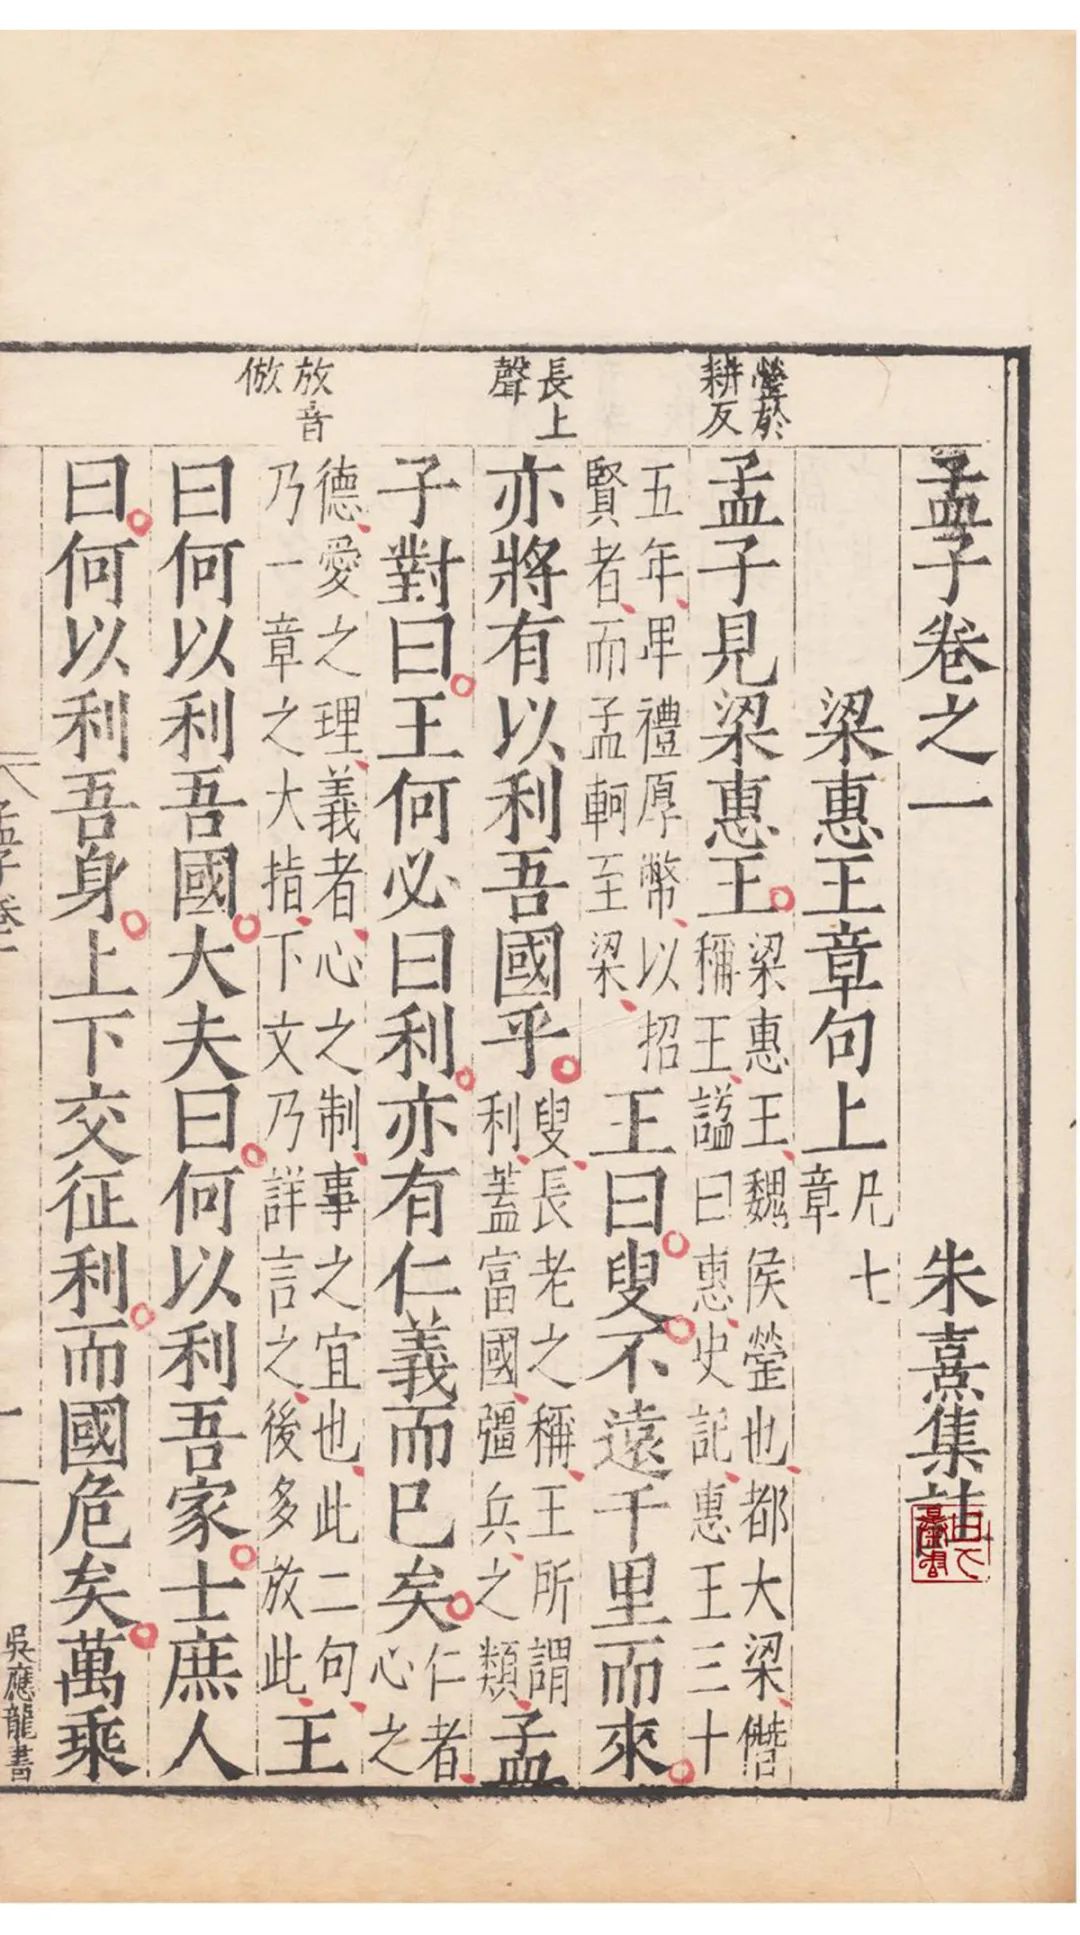 孟子卷之一 朱熹集註
梁惠王章句上 凡七章
孟子見梁惠王 梁惠王魏侯罃也都大梁僭稱王謚曰惠史記惠王三十
五年卑禮厚幣以招賢者而孟軻至梁 王曰叟不遠千里而來
亦將有以利吾國乎 叟長老之稱王所謂利蓋富國彊兵之類 孟
子對曰王何必曰利亦有仁義而已矣 仁者心之
德愛之理義者心之制事之宜也此二句乃一章之大指下文乃詳言之後多放此 王
曰何以利吾國大夫曰何以利吾家士庶人
曰何以利吾身上下交征利而國危矣萬乘
罃於耕反
長上聲
放音倣
孟子卷一
一
吳應龍書